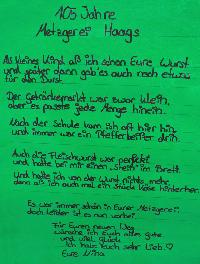 105 Jahre
Metzgerei Haags
Als kleines Kind aß ich schon Eure Wurst
und später dann gab es auch noch etwas
für den Durst.
Der Getränkemarkt war zwar klein,
aber es passte jede Menge hinein.
Nach der Schule kam ich oft hier hin
und immer war ein Pfefferbeißer drin.
Auch die Fleischwurst war perfekt
und hatte bei mir einen Stein im Brett.
Und hatte ich von der Wurst nichts mehr,
dann aß ich auch mal ein Stück Käse hinterher.
Es war immer schön in Eurer Metzgerei,
doch leider ist es nun vorbei.
Für Euren neuen Weg
wünsche ich Euch alles gute
und viel Glück
Ich hab Euch sehr lieb ♡
Eure Nina